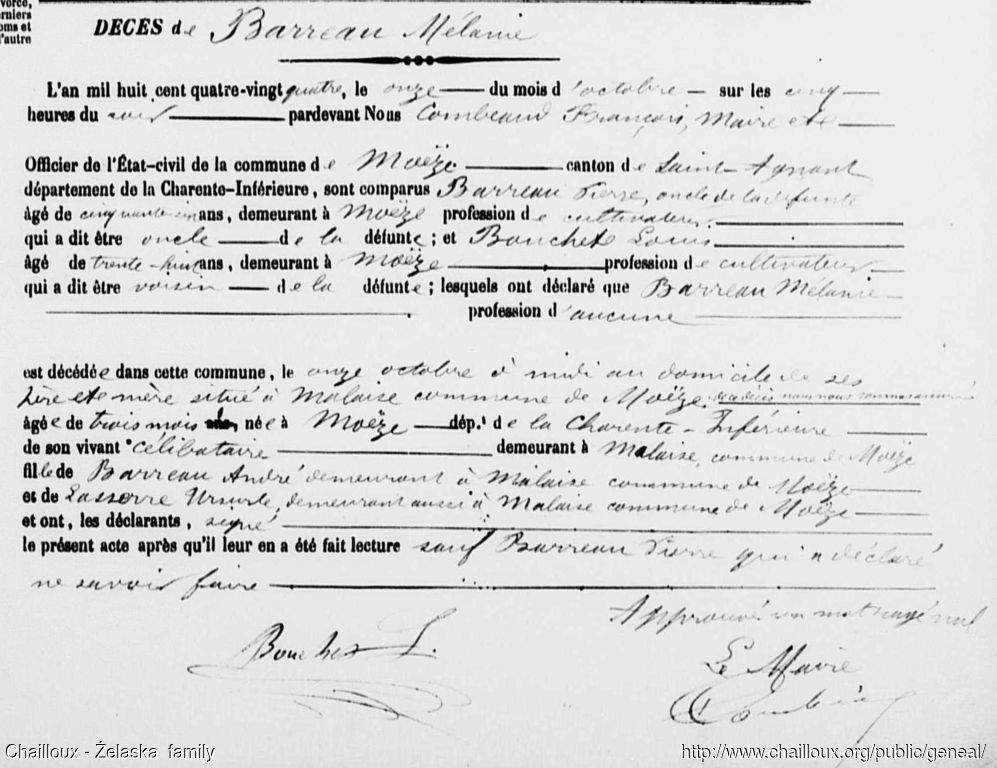 vorce,
erniers
oms et
l'autre
DECES de Barreau Mélanie
L'an mil huit cent quatre-vingt quatre, le onze du mois d'octobre sur les cinq
heures du soir pardevant Nous Combeaud François, Maire et
Officier de l'État-civil de la commune de Moëze canton de Saint-Agnant
département de la Charente-Inférieure, sont comparus Barreau Pierre, oncle de la défunte
âgé de cinquante ans, demeurant à Moëze profession de cultivateur
qui a dit être oncle de la défunte; et Bouchet Louis
âgé de trente-huit ans, demeurant à Moëze profession de cultivateur
qui a dit être voisin de la défunte; lesquels ont déclaré que Barreau Mélanie
profession d'aucune
est décédée dans cette commune, le onze octobre à midi au domicile de ses
père et mère situé à Malaise commune de Moëze
âgée de trois mois née à Moëze dép.t de la Charente-Inférieure
de son vivant célibataire demeurant à Malaise, commune de Moëze
fille de Barreau André demeurant à Malaise commune de Moëze
et de Lasserre Ursule, demeurant aussi à Malaise commune de Moëze
et ont, les déclarants, signé
le présent acte après qu'il leur en a été fait lecture sauf Barreau Pierre qui a déclaré
ne savoir faire
Approuvé un mot rayé nul
Bouchet L.
Le Maire
Chailloux - Żelaska family
http://www.chailloux.org/public/geneal/